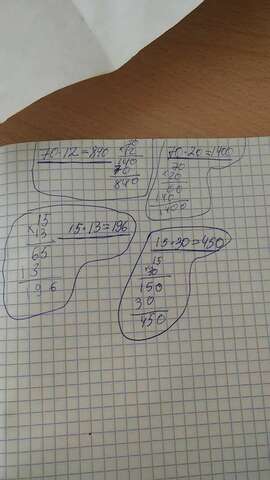 70·12=840
70
12
140
70
840
70·20=1400
70
×20
00
140
1400
15
×13
65
13
196
15·13=196
15·30=450
15
×30
150
30
450